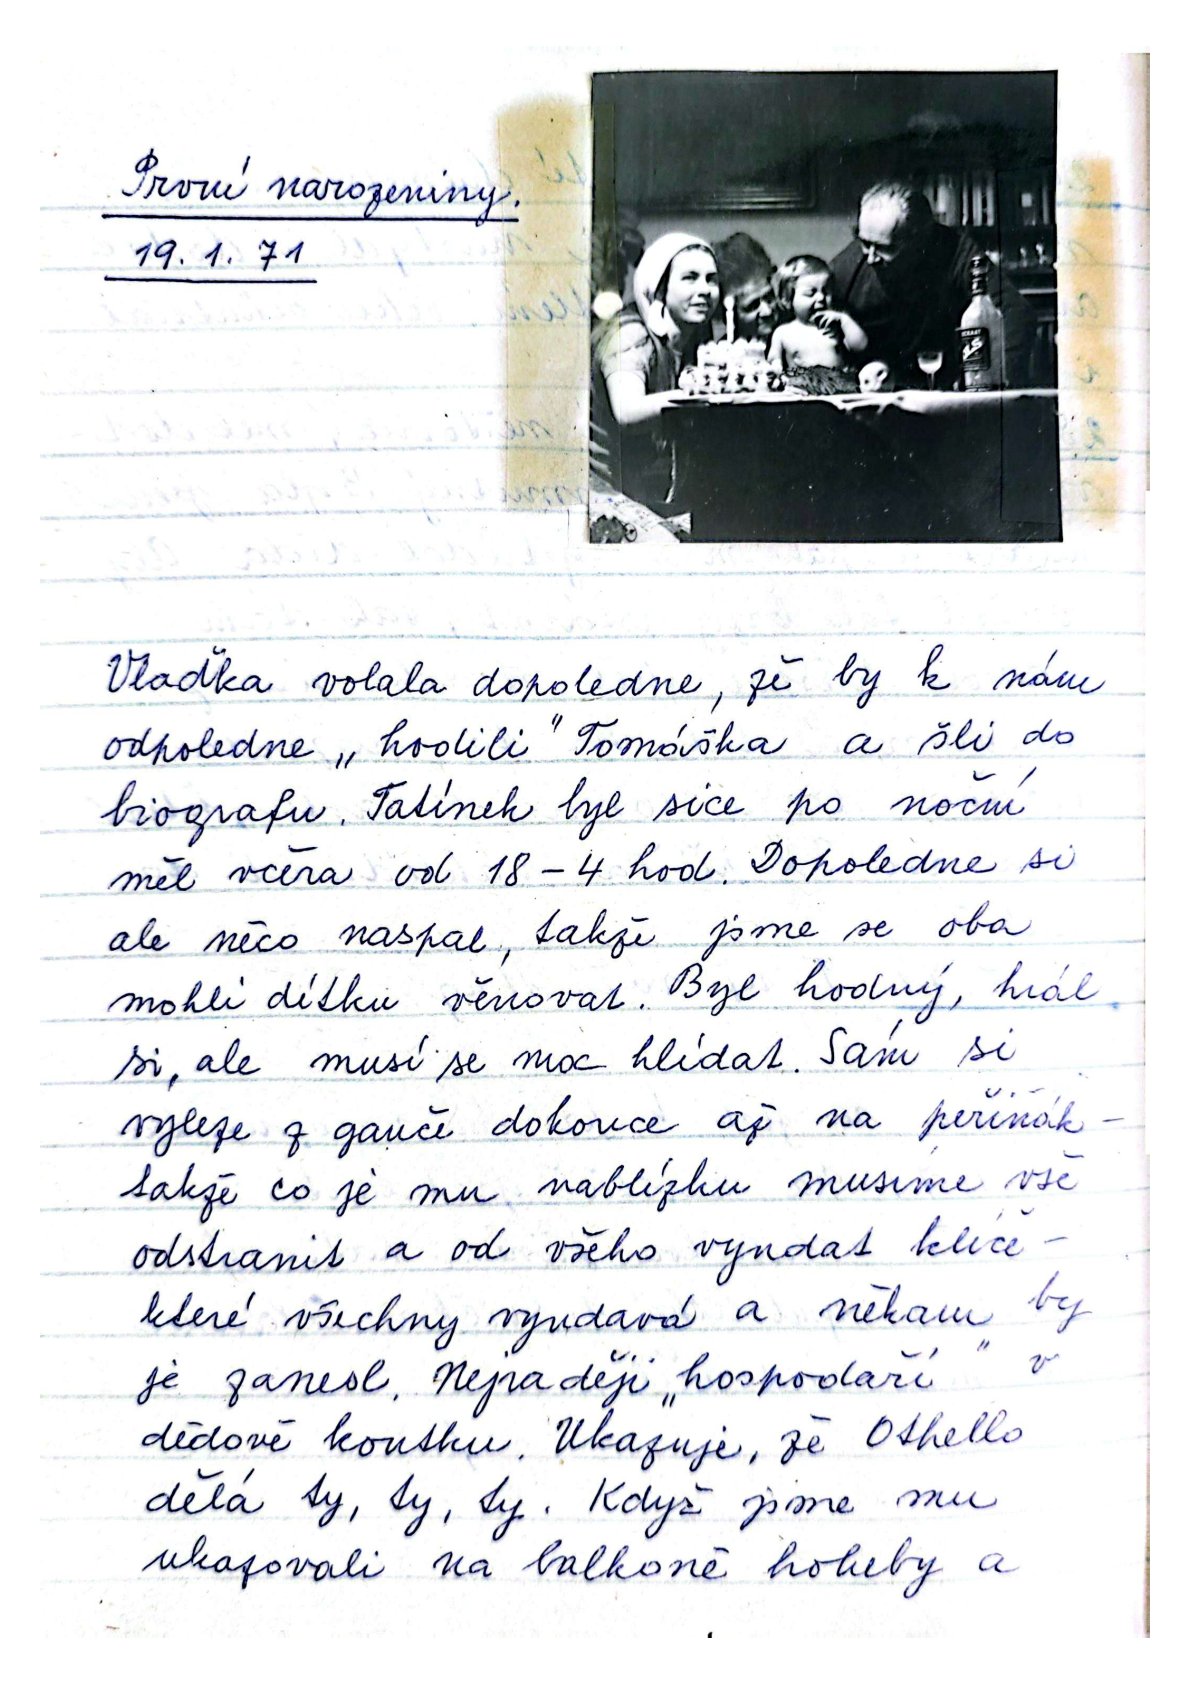 První narozeniny.
19. 1. 71
Vlaďka volala dopoledne, že by k nám
odpoledne „hodili" Tomáška a šli do
biografu. Tatínek byl sice po noční
měl včera od 18 – 4 hod. Dopoledne si
ale něco naspal, takže jsme se oba
mohli dítku věnovat. Byl hodný, hrál
si, ale musí se moc hlídat. Sám si
vyleze z gauče dokonce až na peřiňák –
takže co je mu nablízku musíme vše
odstranit a od všeho vyndat klíče –
které všechny vyndavá a někam by
je zanesl. Nejraději „hospodaří" v
dědově koutku. Ukazuje, že Othello
dělá ty, ty, ty. Když jsme mu
ukazovali na balkoně holuby a